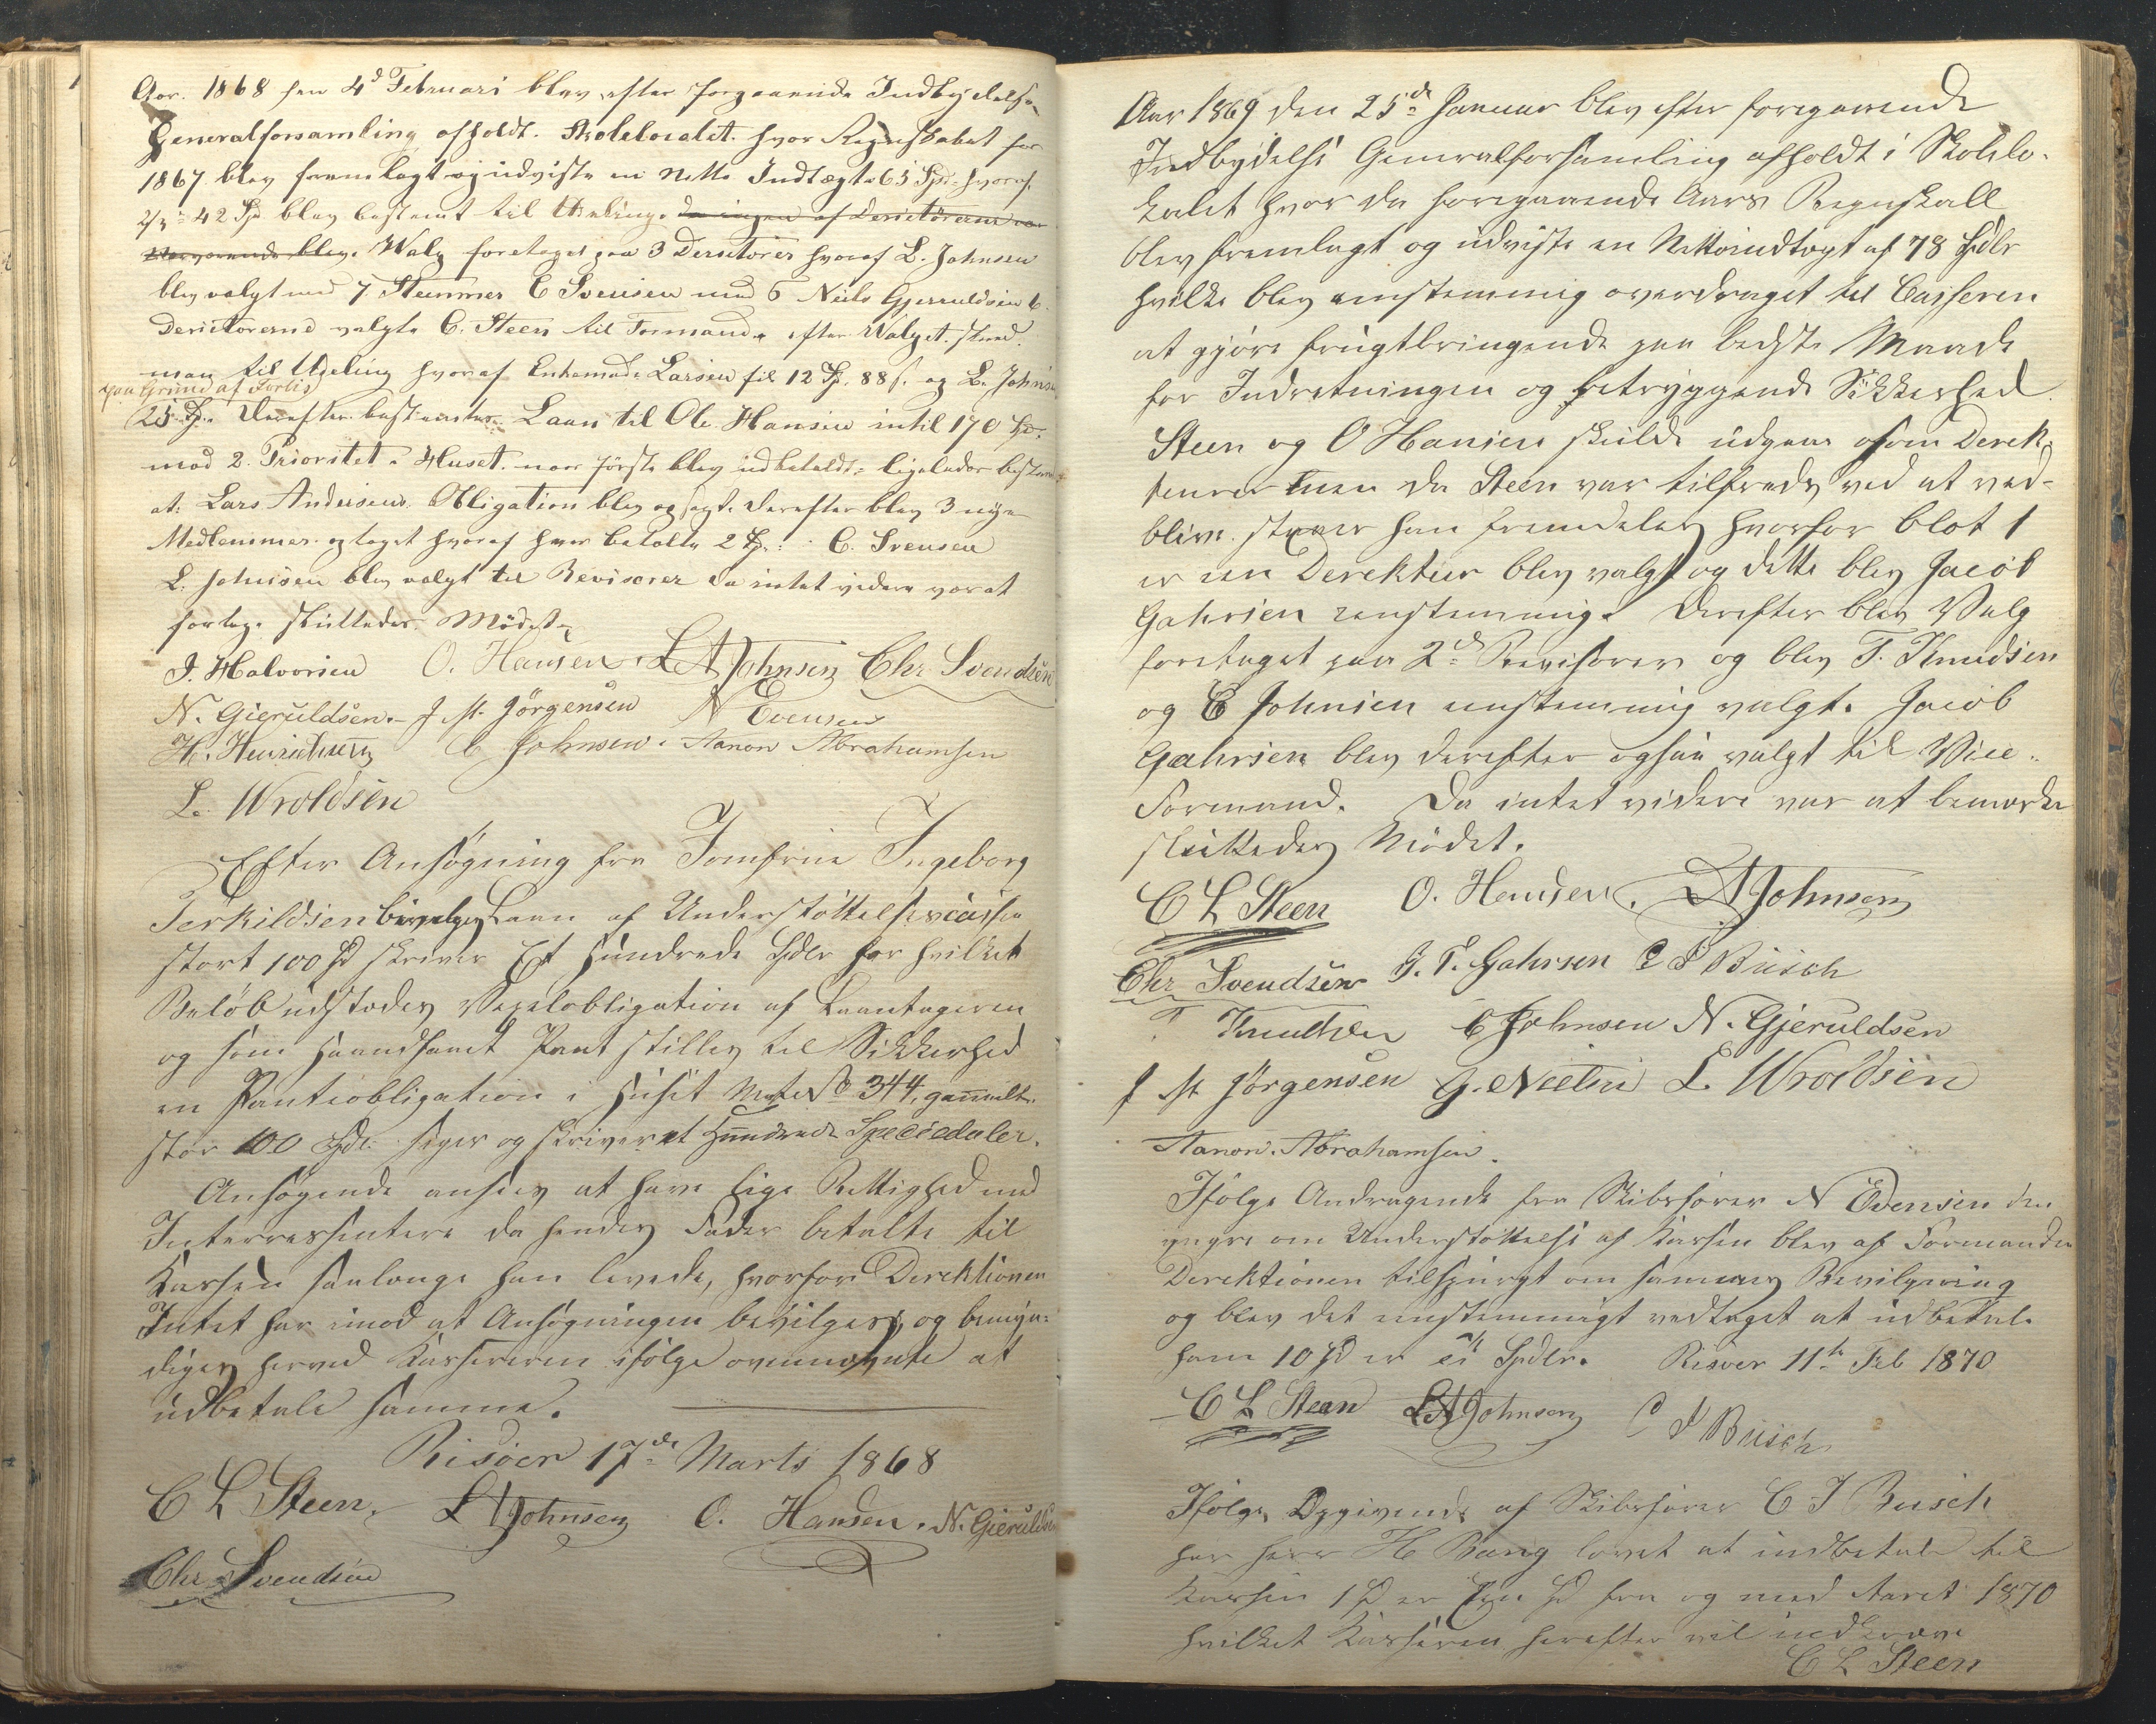 Aar. 1868 den 4d Februari blev efter forgaaende Indbydelse
Generalforsamling afholdt. Skolelocalet. hvor Regnskabet for
1867 blev fremlagt og udviste en Netto Indtægt 63 Spd hvoraf
2/3 = 42 Sp blev bestemt til Udeling. da ingen af Derictörerne var
Nærværende blev. Walg foretaget paa 3 Derictörer hvoraf L. Johnsen
blev valgt med 7 Stemmer C Svensen med 6 Niels Gjeruldsen 6
Derictörerne valgte C. Steen til Formand. efter Walget skred
man til Udeling hvoraf Enkemad. Larsen fik 12 Sp. 88 s. og L. Johnsen
paa Grund af Forlis
25 Sp. Derefter bestemtes Laan til Ole Hansen intil 170 Spd.
mod 2. Prioritet i Huset. naar første blev indbetaldt. ligeledes bestemt
at. Lars Andersens. Obligation blev opsagt. derefter blev 3 nye
Medlemmer. optaget hvoraf hver betalte 2 Sp. C. Svensen
L. Johnsen blev valgt til Revisorer da intet videre var at
fortage. sluttedes Mödet.
J. Halvorsen O. Hansen. L A Johnsen Chr Svendsen
N. Gieruldsen. J M. Jörgensen N Evensen
H. Henrichsen C Johnsen. Aanon Abrahamsen
L. Wroldsen
Efter Ansøgning fra Jomfrue Ingeborg
Terkildsen bevilges Laan af Understöttelsescassen
stort 100 Sp skriver Et Hundrede Spdlr for hvilket
Belöb udstedes Vexelobligation af Laantageren
og som haandfaaet Pant stilles til Sikkerhed
en Panteobligation i Huset Mate No 344, gammelt.
stor 100 Spd. siger og skriver et Hundrede Speciedaler.
Ansøgende ansees at have lige Rettighed med
Interressentere da hendes Fader betalte til
Kassen saalænge han levede, hvorfor Direktionen
Intet har imod at Ansøgningen bevilges, og bemyn=
diges herved Kassereren ifølge ovennævnte at
udbetale samme.
Risöer 17de Marts 1868
C L Steen. L A Johnsen O. Hansen. N. Gieruldsen
Chr Svendsen
Aar 1869 den 25de Januar blev efter foregaaende
Indbydelse Generalforsamling afholdt i Skolelo-
kalet hvor da foregaaende Aars Regnskab
blev fremlagt og udviste en Nettoindtægt af 78 Spdlr
hvilke blev enstemmig overdraget til Casseren
at gjøre frugtbringende paa bedste Maade
for Indretningen og betryggende Sikkerhed.
Steen og O Hansen skulde udgaa som Derek-
teurer men da Steen var tilfreds ved at ved-
blive staaer han fremdeles hvorfor blot 1
er een Derekteur blev valgt og dette blev Jacob
Gahrsen eenstemmig. Derefter blev Valg
foretaget paa 2de Revisorer og blev T. Knudsen
og C Johnsen eenstemmig valgt. Jacob
Gahrsen blev derefter ogsaa valgt til Vice-
Formand. Da intet videre var at bemærke
sluttedes Mödet.
C L Steen O. Hansen. L A Johnsen
Chr Svendsen J. T. Gahrsen C J Büsch
T Knudsen C Johnsen N. Gjeruldsen
J M Jörgensen L. Wroldsen
Aanon. Abrahamsen.
Ifølge Andragende fra Skibsfører N Evensen den
yngre om Understøttelse af Kassen blev af Formanden
Derektionen tilspurgt om sammes Bevilgning
og blev det enstemmigt vedtaget at udbetale
ham 10 Spd er ti Spdlr. Risoer 11te Feb 1870
C L Steen L A Johnsen C J Büsch
Ifølge Opgivende af Skibsfører C J Busch
har Herr H Bang lovet at indbetale til
Kassen 1 Spd er Een Spd fra og med Aaret 1870
hvilket Kasseren herefter vil indkræve
C L Steen